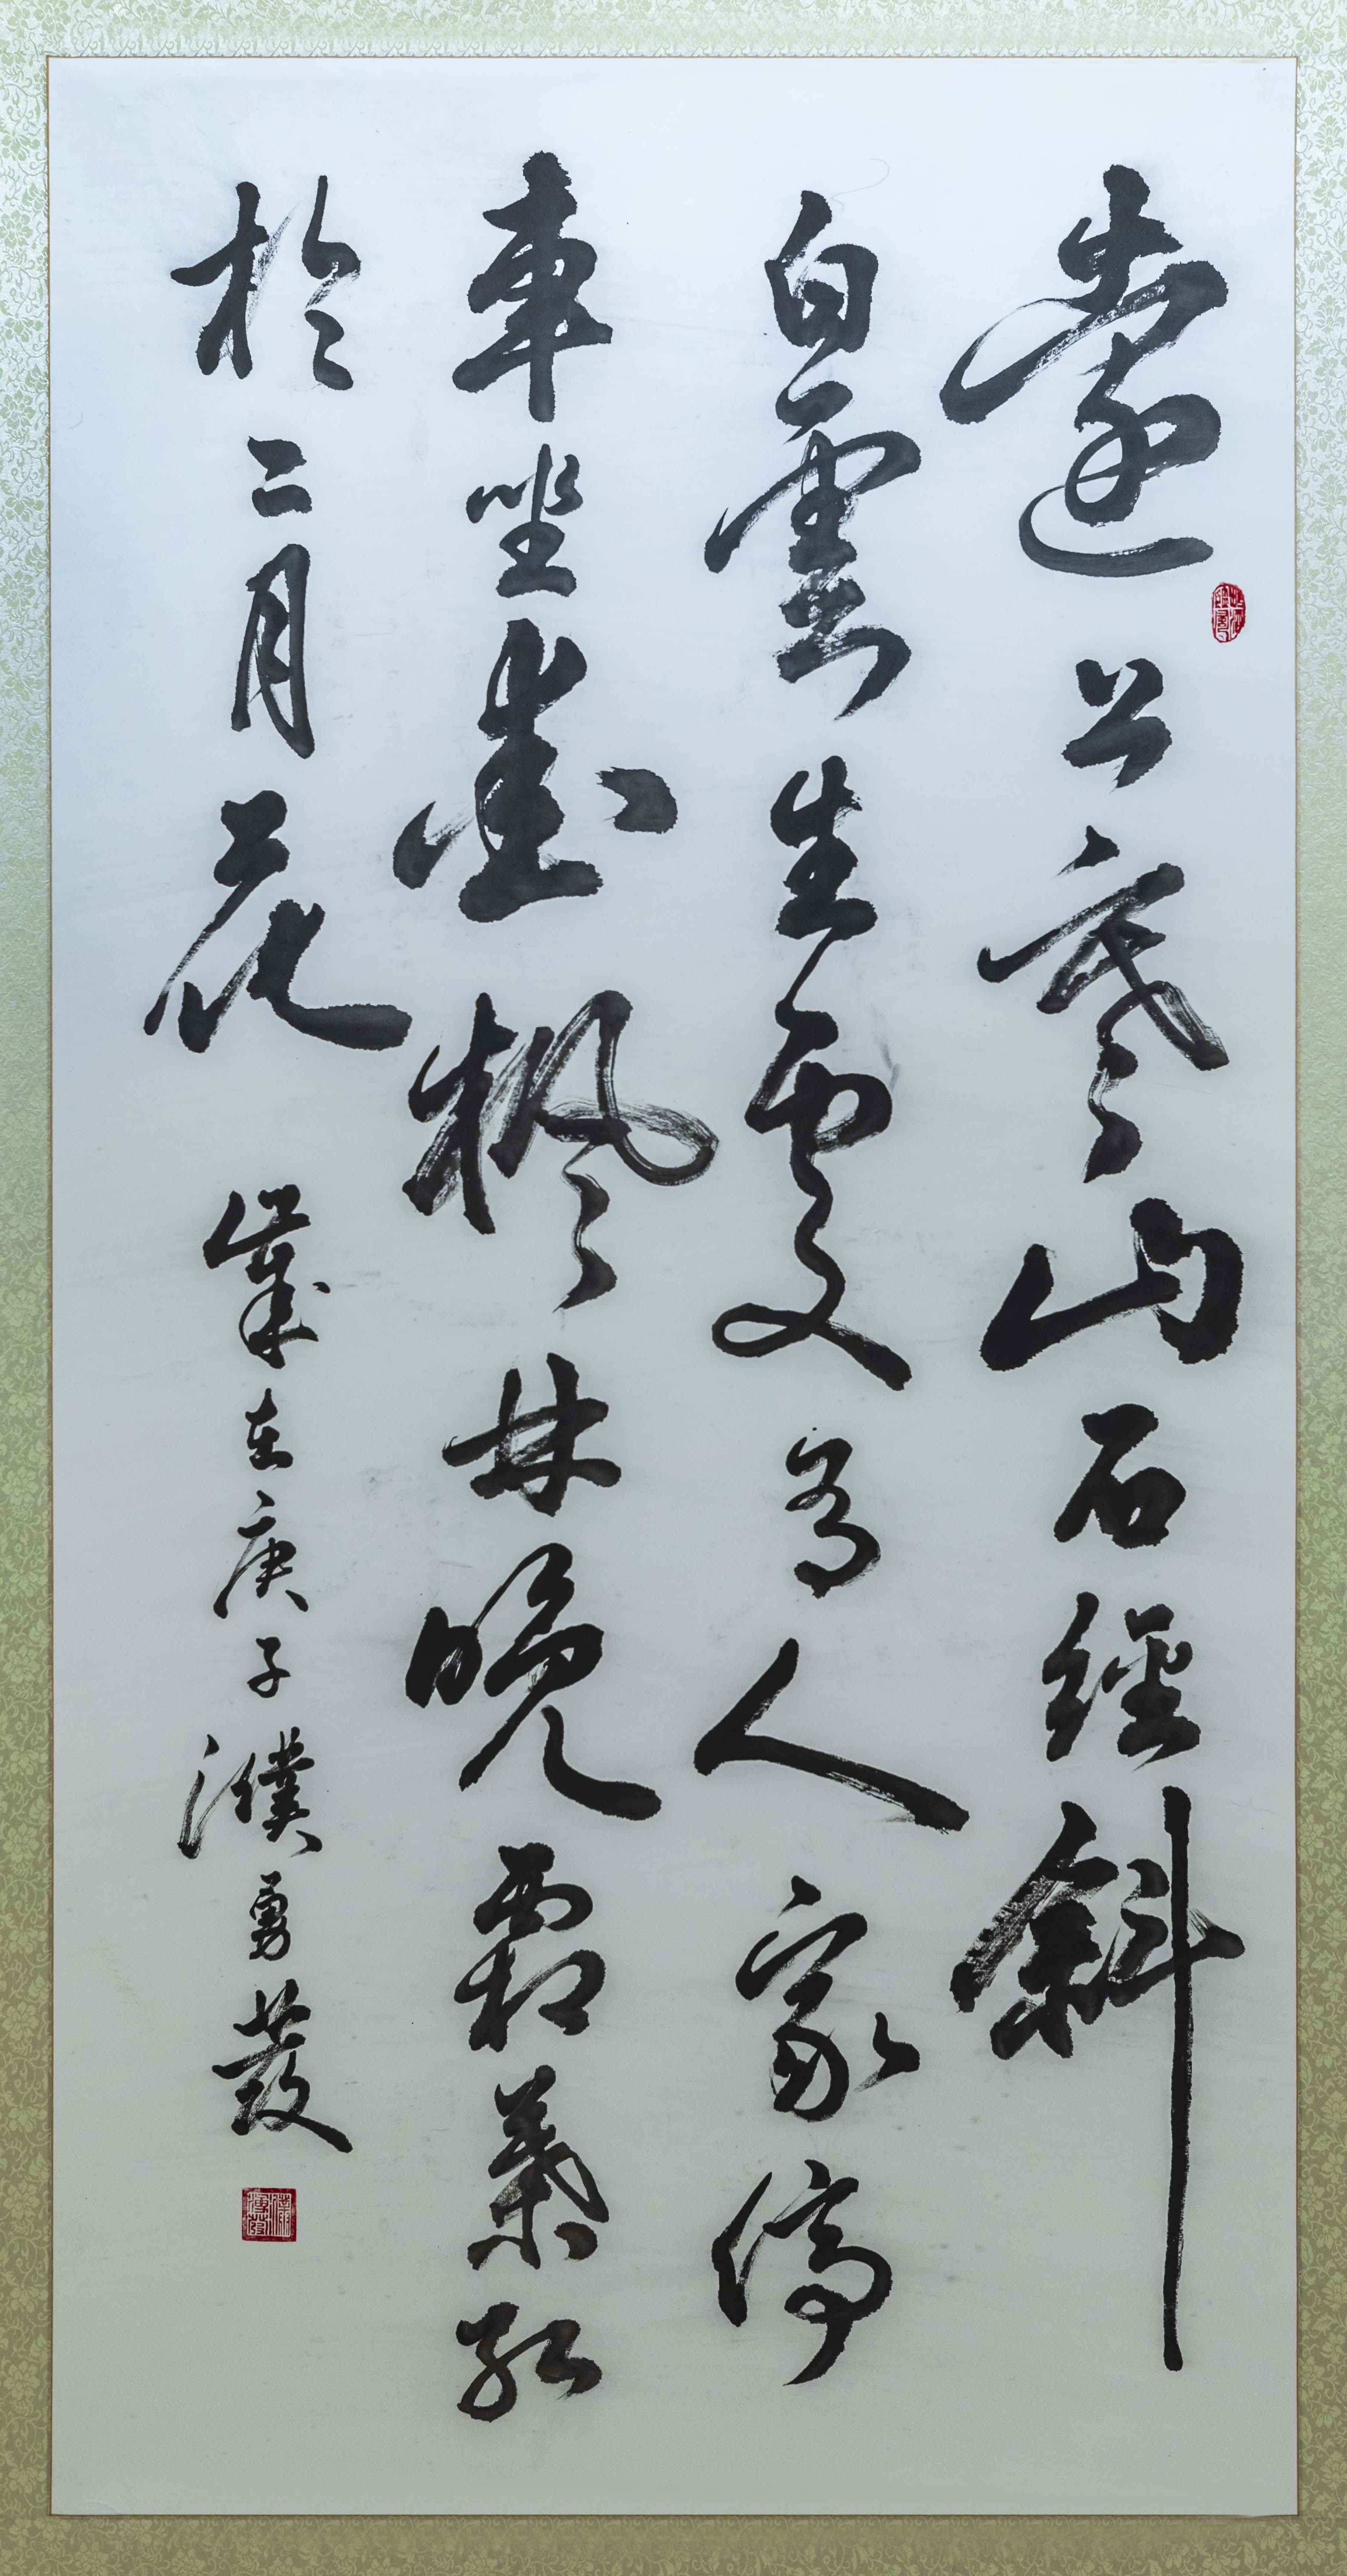 遠上寒山石經斜
白雲生處有人家停
車坐愛楓林晚霜葉紅
於二月花 歲在庚子濮勇發